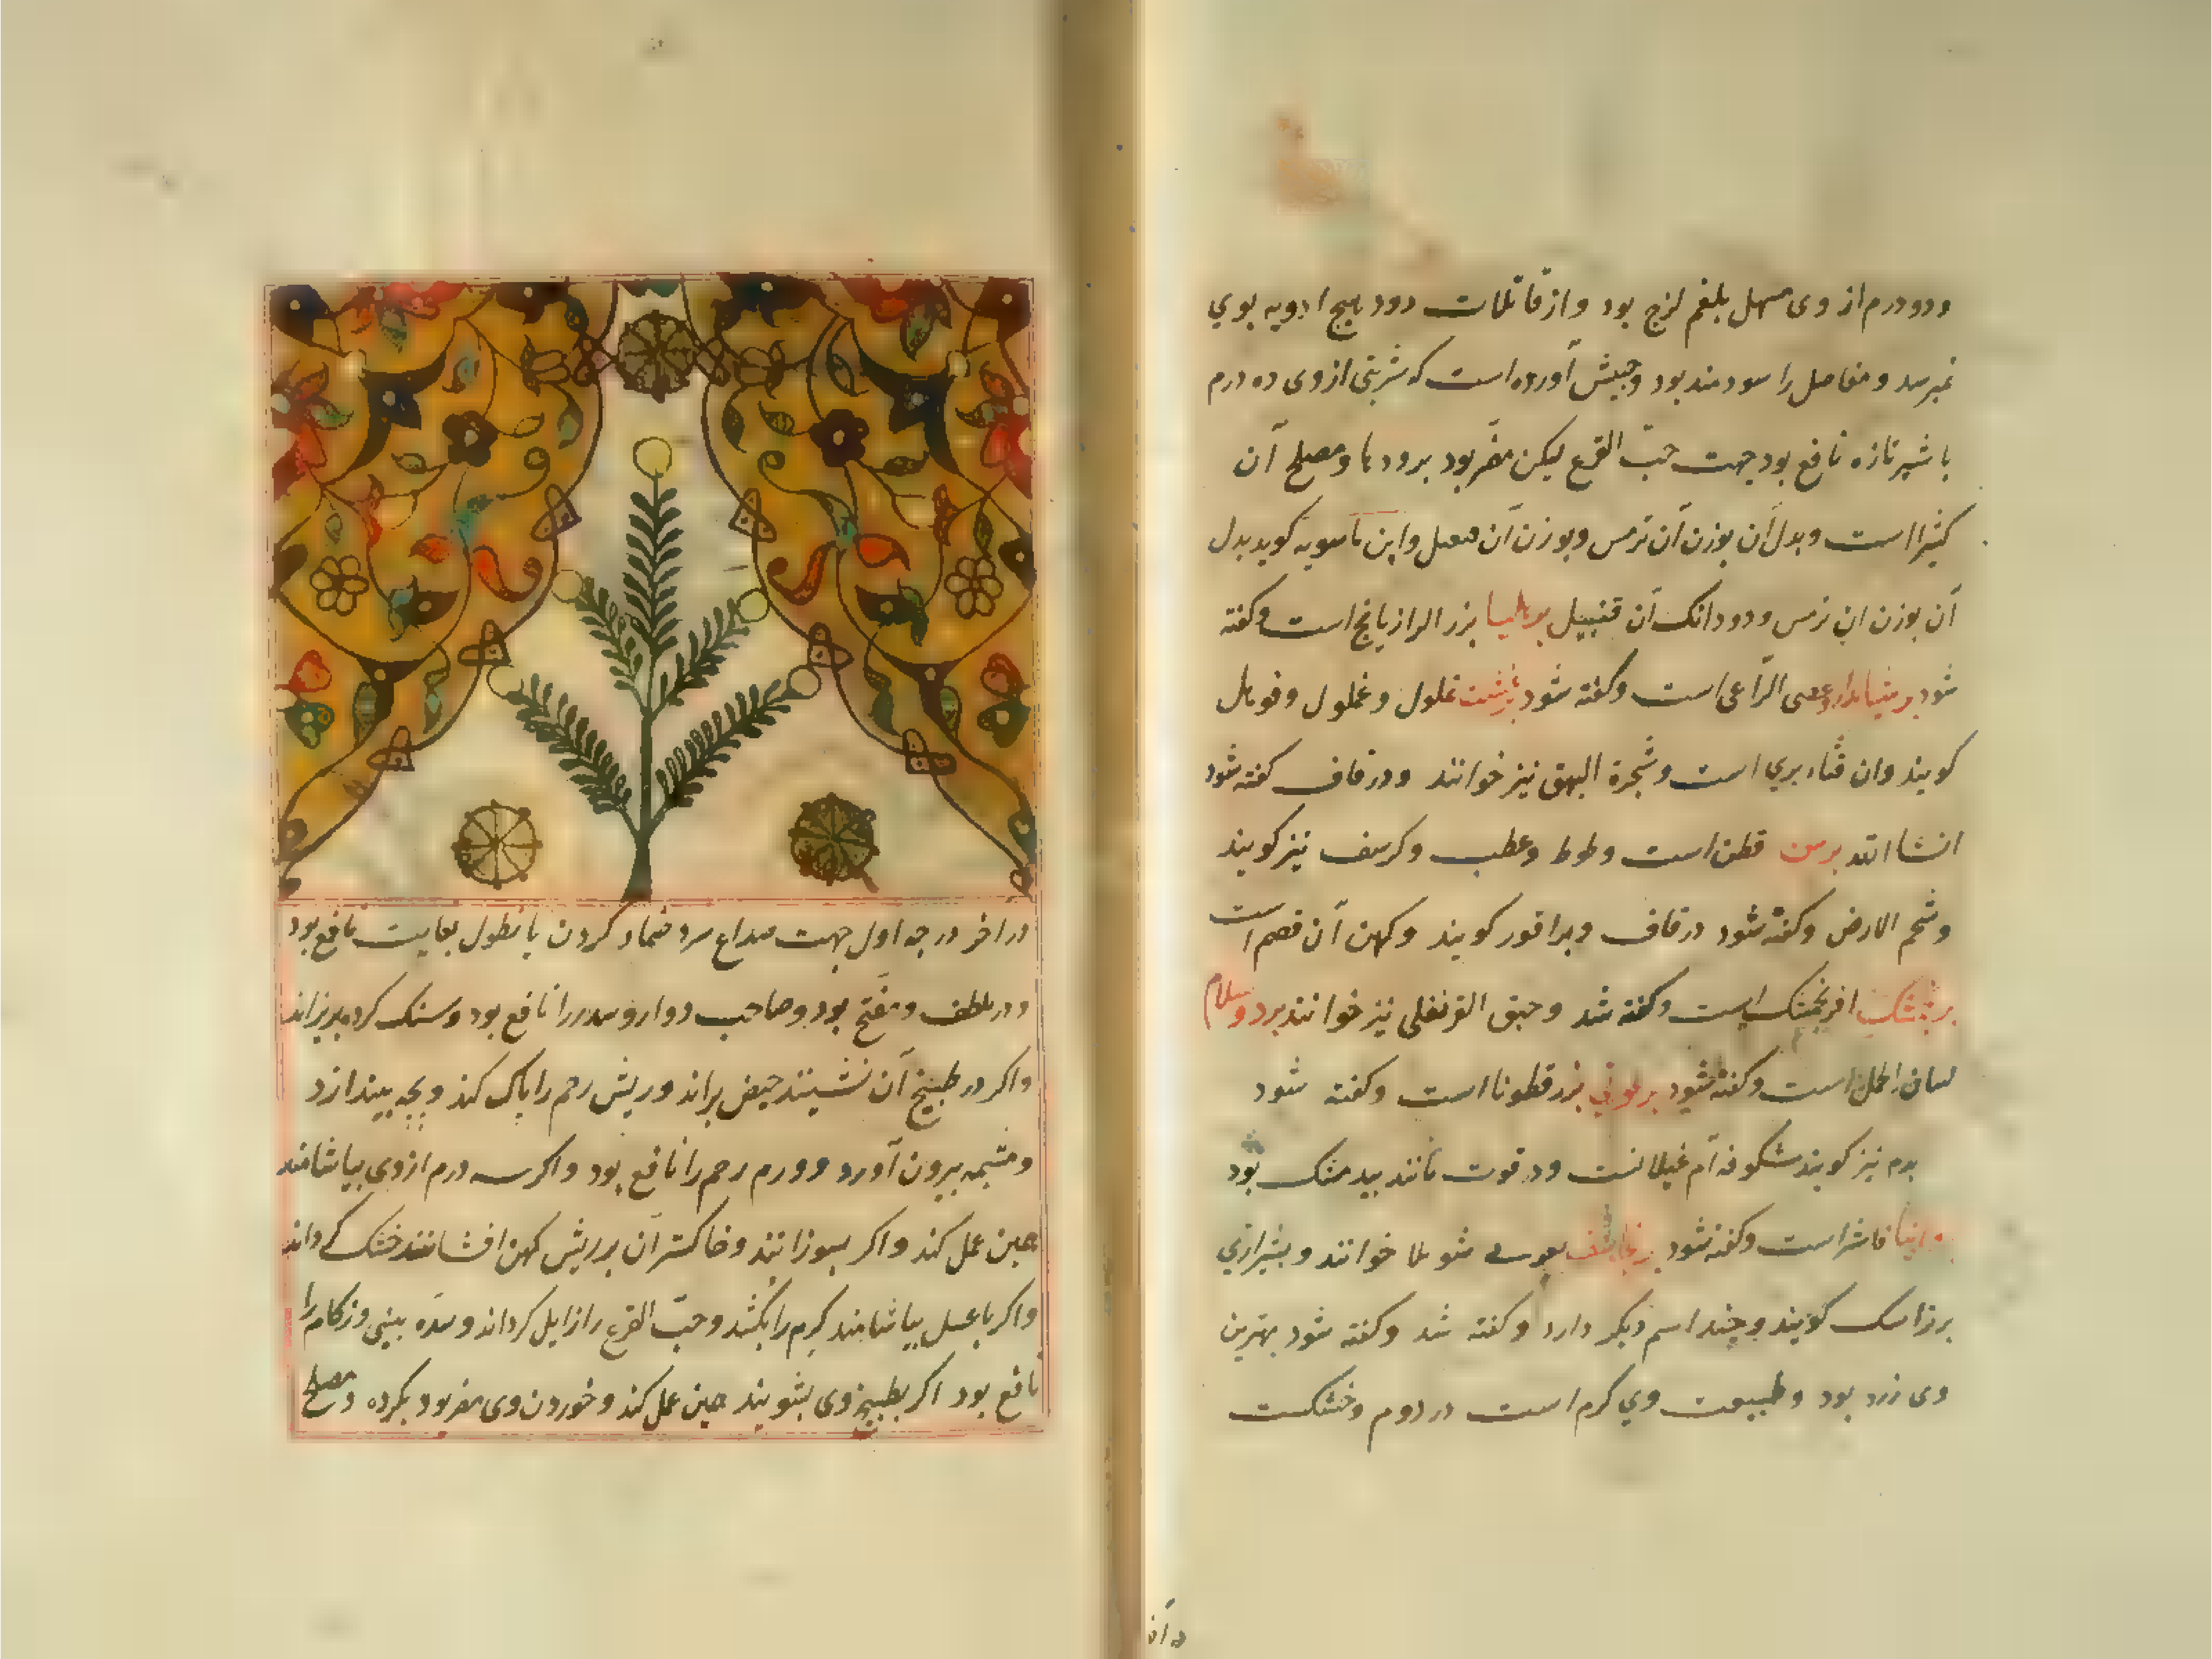 ودو درم از وی مسهل بلغم لزج بود و از قاتلات دود هیچ ادویه بوي
نمیرسد و مفاصل را سودمند بود وحبیش آورده است که شربتی ازوی ده درم
با شیر تازه نافع بود جهت حبّ القرع لیکن مضّر بود برودها ومصلح آن
کثیرا است وبدل آن بوزن آن ترمس وبوزن آن واین ماسویه کوید بدل
آن بوزن ان ترمس ودو دانک آن قنبیل برهلیا بزر الرازیانج است وکفته
شود برشیاندارو عصی الرّاعی است وکفته شود غلول وغملول وقوهال
کویند وان قثاء بري است وشجرة البهق نیز خوانند ودر قاف کفته شود
انشا الله برس قطن است وطوط وعطب وکرسف نیز کویند
وشحم الارض وکفته شود در قاف کویند وکهن آن قصم است
افرنجمشک است وکفته شد وحبق القرنفلی نیز خوانند برد وسلام
لسان الحمل است وکفته شود بزرقطونا است وکفته شود
برم نیز کویند شکوفه اّم غیلانست ودر قوت مانند بید مشک بود
فاشرا است وکفته شود خوانند وبشیرازي
کویند وچند اسم دیکر دارد وکفته شد وکفته شود بهترین
وی زرد بود وطبیعت وي کرم است در دوم وخشکست
در اخر درجه اول جهت صداع سرد ضماد کردن یا نطول بغایت نافع بود
ودر ملطف ومفتّح بود وصاحب دوار وسدر را نافع بود وسنک کرده بریزاند
واکر در طبیخ آن نشینند حیض براند وریش رحم را پاک کند وبچه بیندازد
ومشیمه بیرون آورد وورم رحم را نافع بود واکر سه درم ازوی بیاشامند
همین عمل کند واکر بسوزانند وخاکستر آن بر ریش کهن افشانند خشک کرداند
واکر با عسل بیاشامند کرم را بکشد وحبّ القرع را زایل کرداند وسدّه بینی وزکام را
نافع بود اکر بطبیخ وی بشویند همین عمل کند وخوردن وی مضر بود بکرده ومصلح